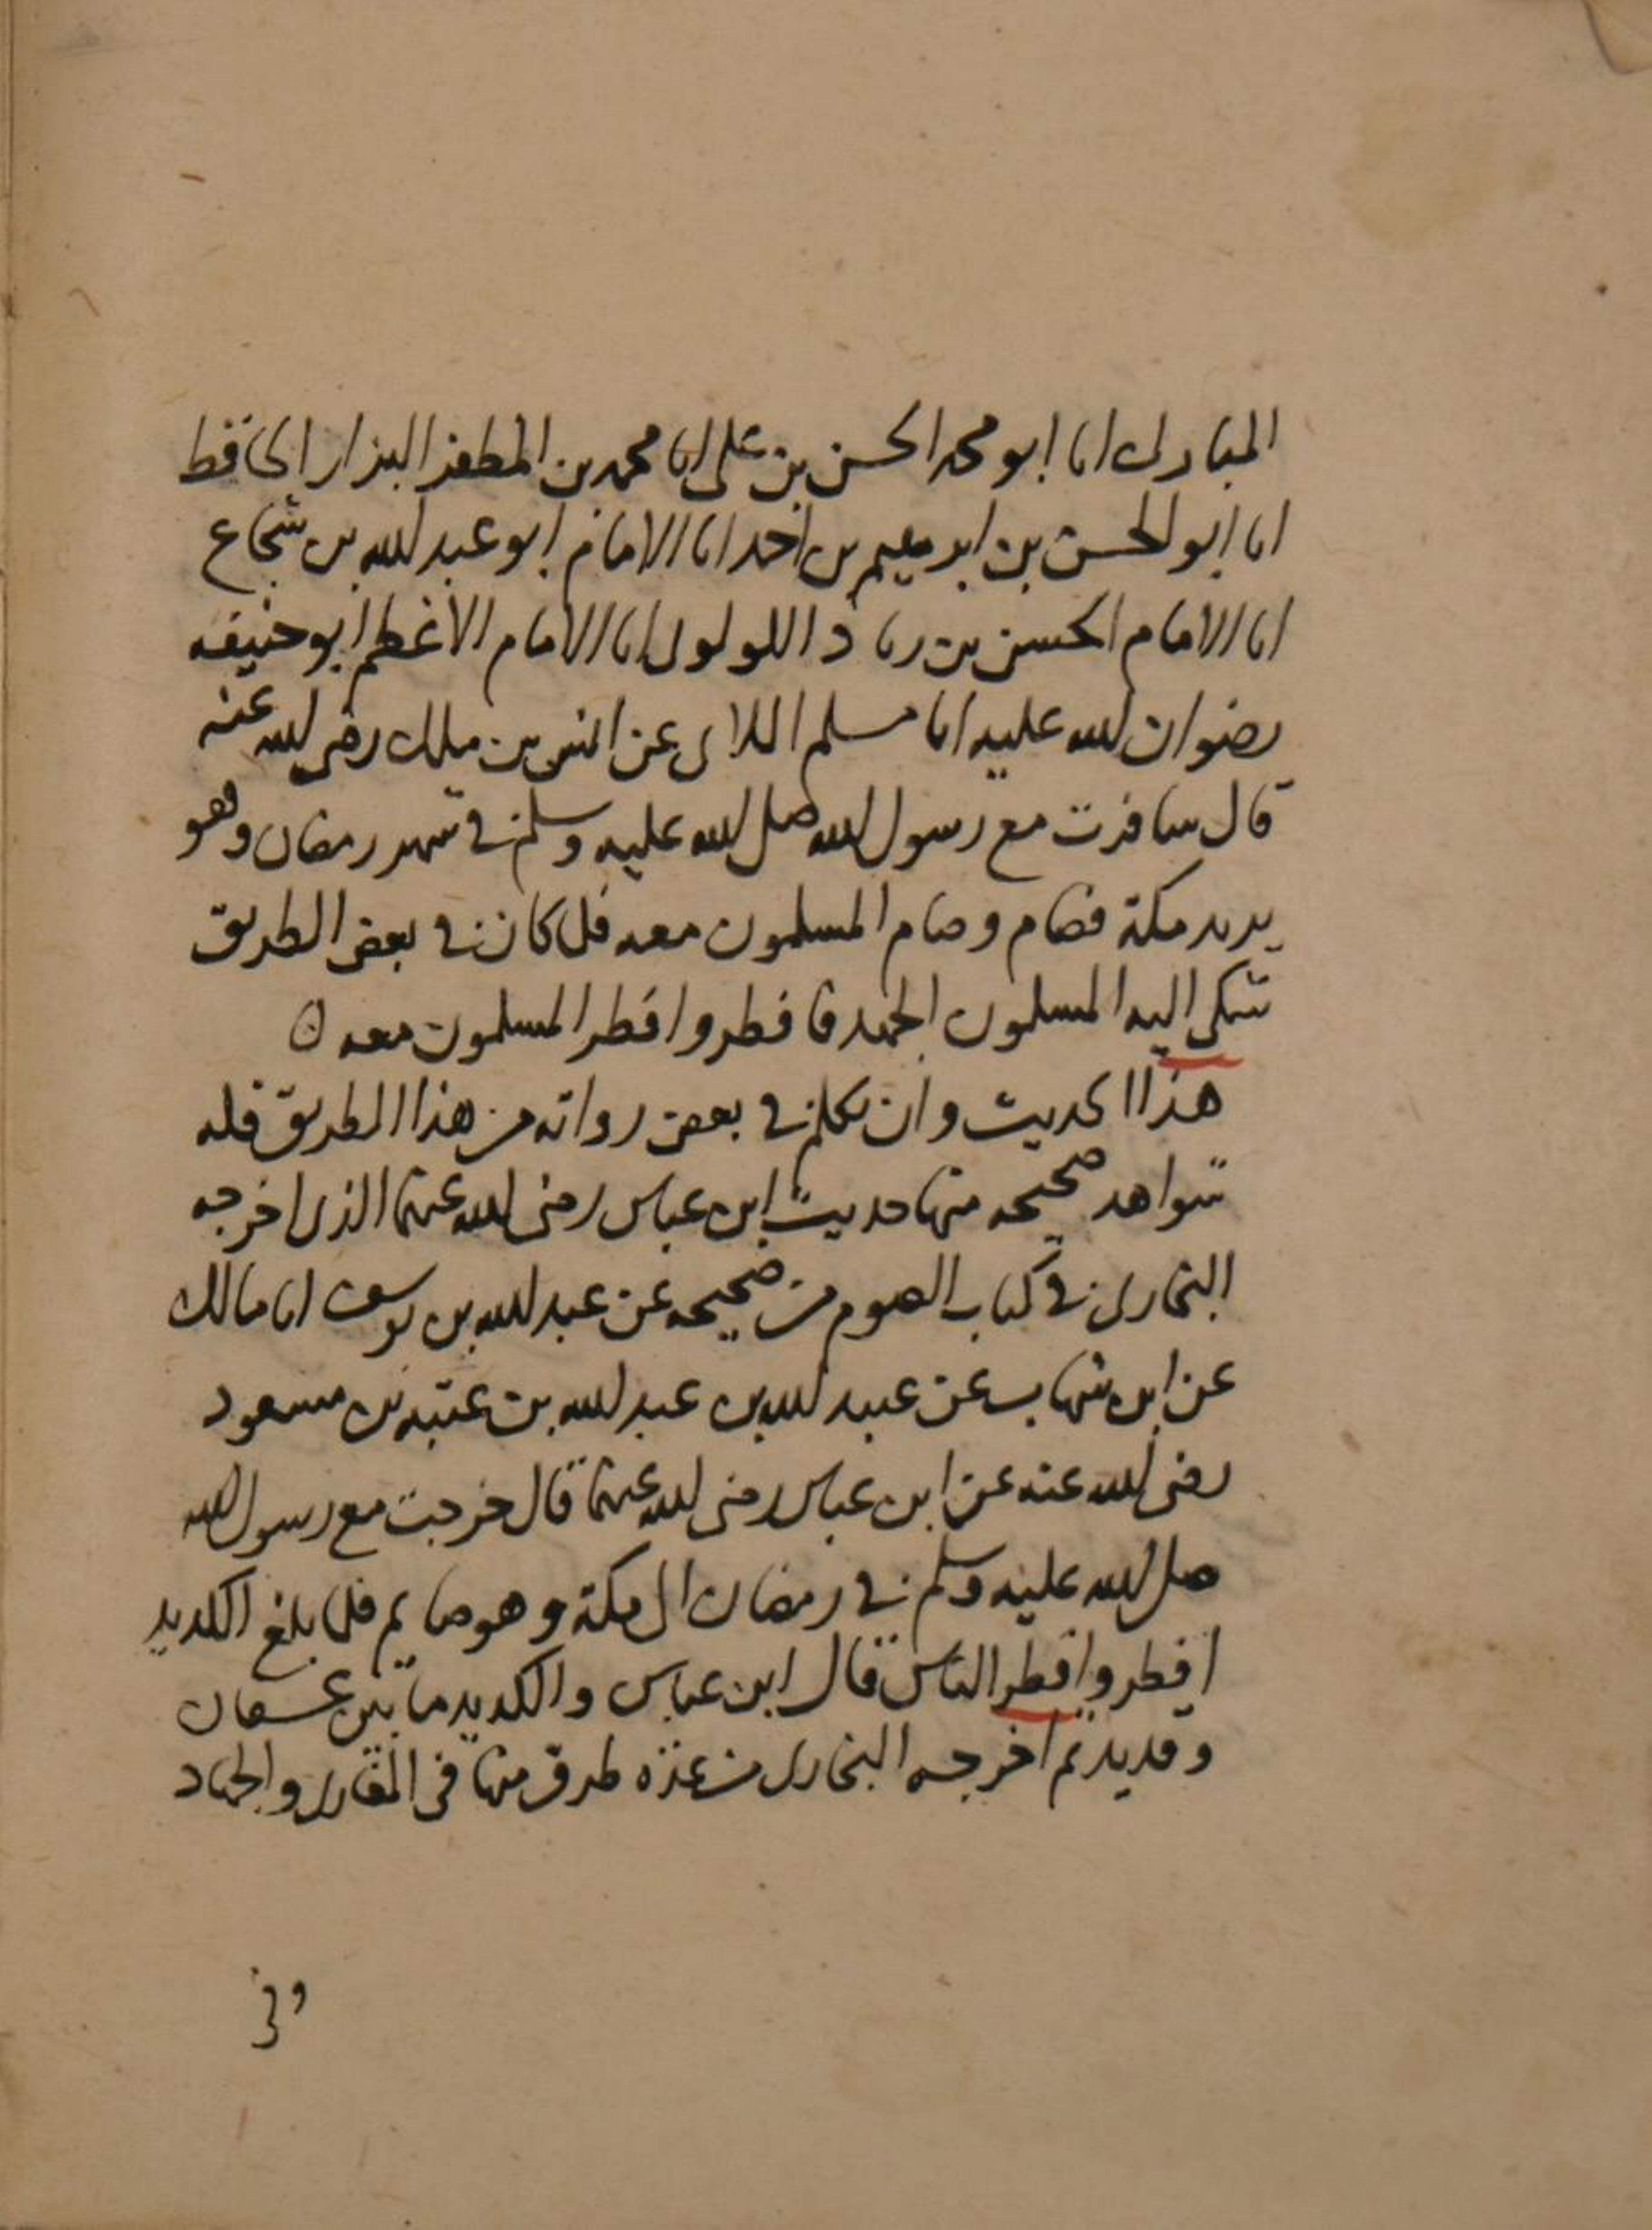 المبارك انا ابو محمد الحسن بن على انا محمد بن المظفر البزار الحافظ
انا ابو الحسن بن ابرهيم بن احمد انا الامام ابو عبد الله بن شجاع
انا الامام الحسن بن زياد اللولوى انا الامام الاعظم ابو حنيفه
رضوان الله عليه انا مسلم الملاى عن انس بن ملك رضى الله عنه
قال سافرت مع رسول الله صلى الله عليه وسلم في شهر رمضان وهو
يريد مكة فصام وصام المسلمون معه فلما كان في بعض الطريق
شكى اليه المسلمون الجهد فافطر وافطر المسلمون معه
هذا الحديث وان تكلم في بعض رواته من هذا الطريق فله
شواهد صحيحه منها حديث ابن عباس رضى الله عنهما الذى اخرجه
البخارى في كتاب الصوم من صحيحه عن عبد الله بن يوسف انا مالك
عن ابن شهاب عن عبيد الله بن عبد الله بن عتبه بن مسعود
رضى الله عنه عن ابن عباس رضى الله عنهما قال خرجت مع رسول الله
صلى الله عليه وسلم في رمضان الى مكة وهو صايم فلما بلغ الكديد
افطر وافطر الناس قال ابن عباس والكديد ما بين عسفان
وقديد ثم اخرجه البخارى من عدة طرق منها فى المغازى والجهاد
وفى